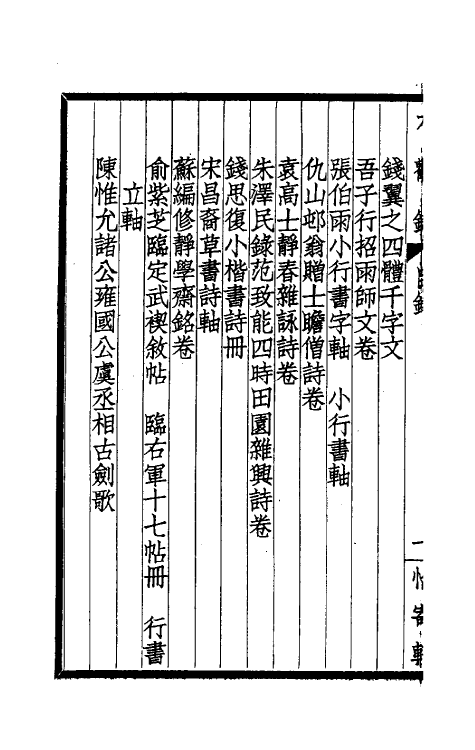 錢翼之四體千字文
吾子行招雨師文卷
張伯雨小行書字軸　小行書軸
仇山邨翁贈士瞻僧詩卷
袁高士靜春雜詠詩卷
朱澤民錄范致能四時田園雜興詩卷
錢思復小楷書詩冊
宋昌裔草書詩軸
蘇編修靜學齋銘卷
俞紫芝臨定武禊敘帖　臨右軍十七帖冊　行書
立軸
陳惟允諸公雍國公虞丞相古劍歌